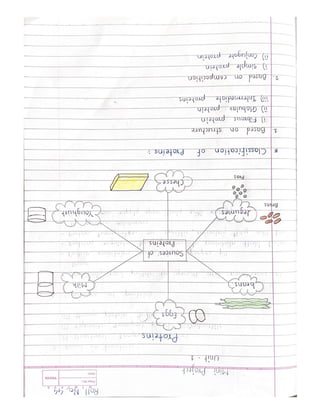 Roll No. 69
Mini Project
Unit - 1
Proteins
Eggs
beans
Milk
Sources of
Proteins
legumes
Youghurt
Beans
Peas
Cheese
* Classification of Proteins :
1. Based on structure
i) Fibrous protein
ii) Globular protein
iii) Intermediate proteins
2. Based on composition
i) Simple protein
ii) Conjugate protein